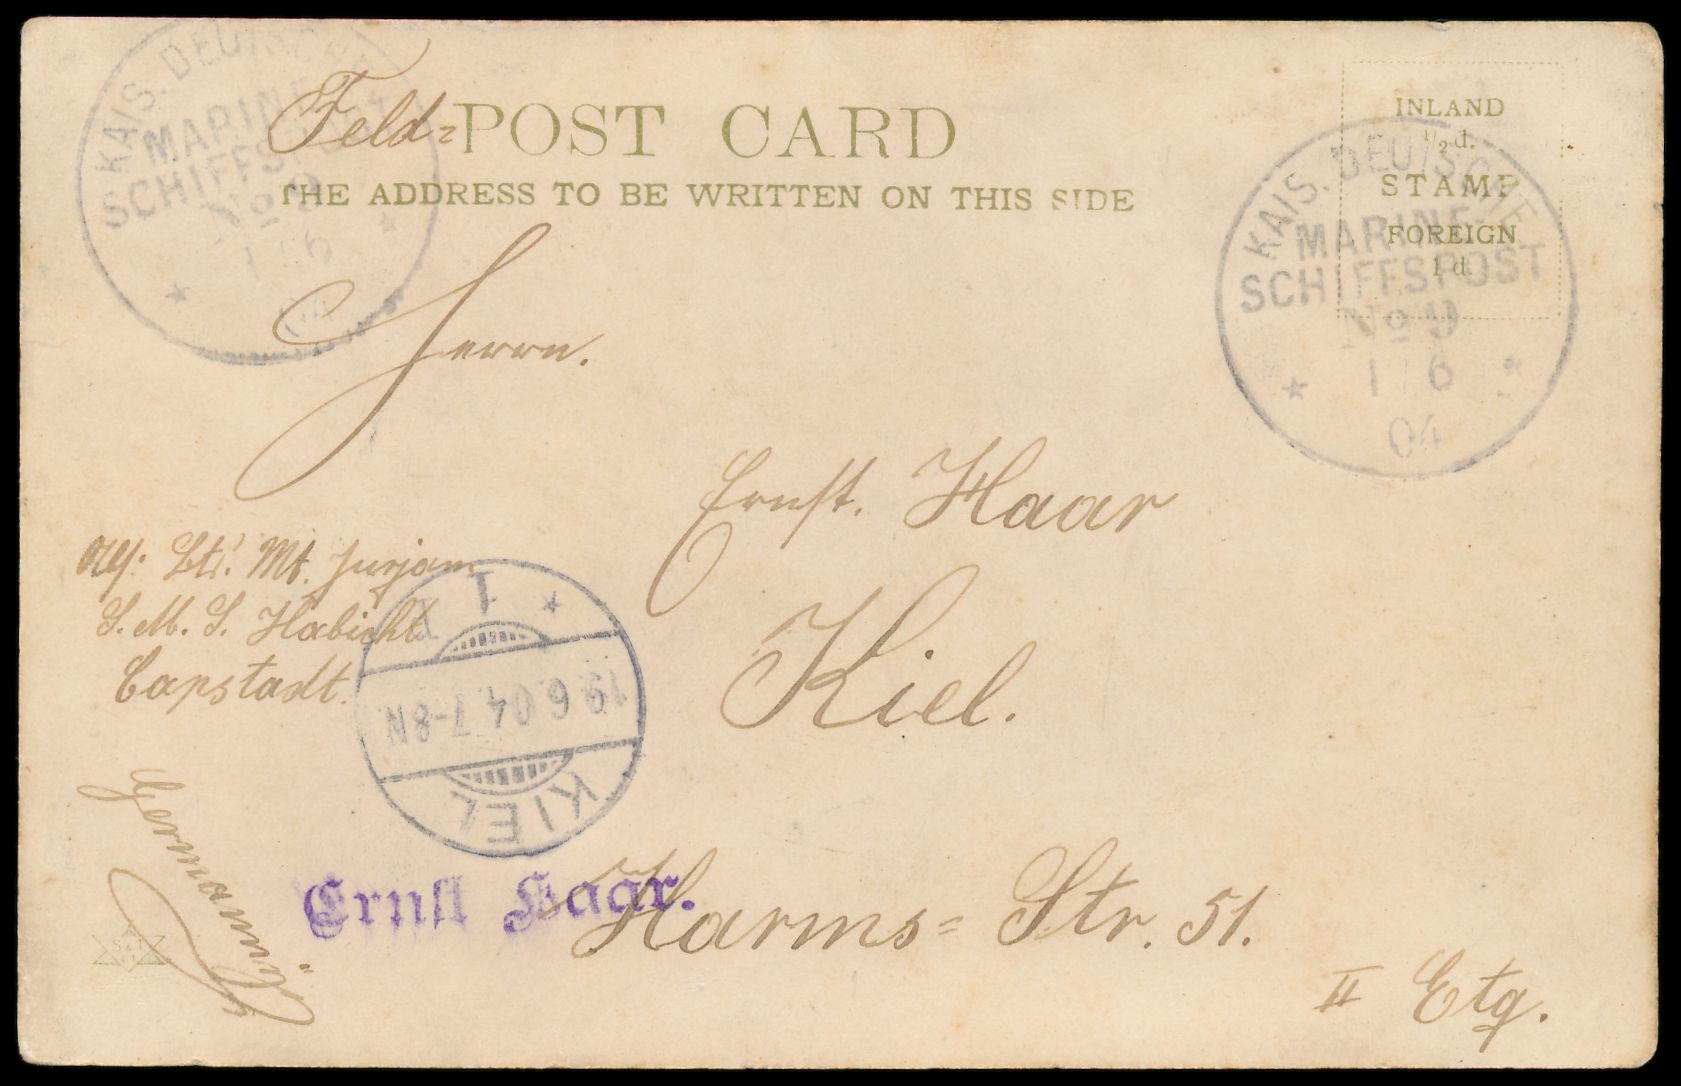 KAIS. DEUTSCHE
MARINE-
SCHIFFSPOST
No 9
1 6
04
Feld=POST CARD
THE ADDRESS TO BE WRITTEN ON THIS SIDE
INLAND
½ d.
STAMP
FOREIGN
1 d.
KAIS. DEUTSCHE
MARINE-
SCHIFFSPOST
No 9
1 6
04
Herrn.
Ernst. Haar
Kiel.
Harms=Str. 51.
II Etg.
Mt.
S. M. S. Habicht
Capstadt.
KIEL
19.6.04.7-8N
1
Ernst Haar.